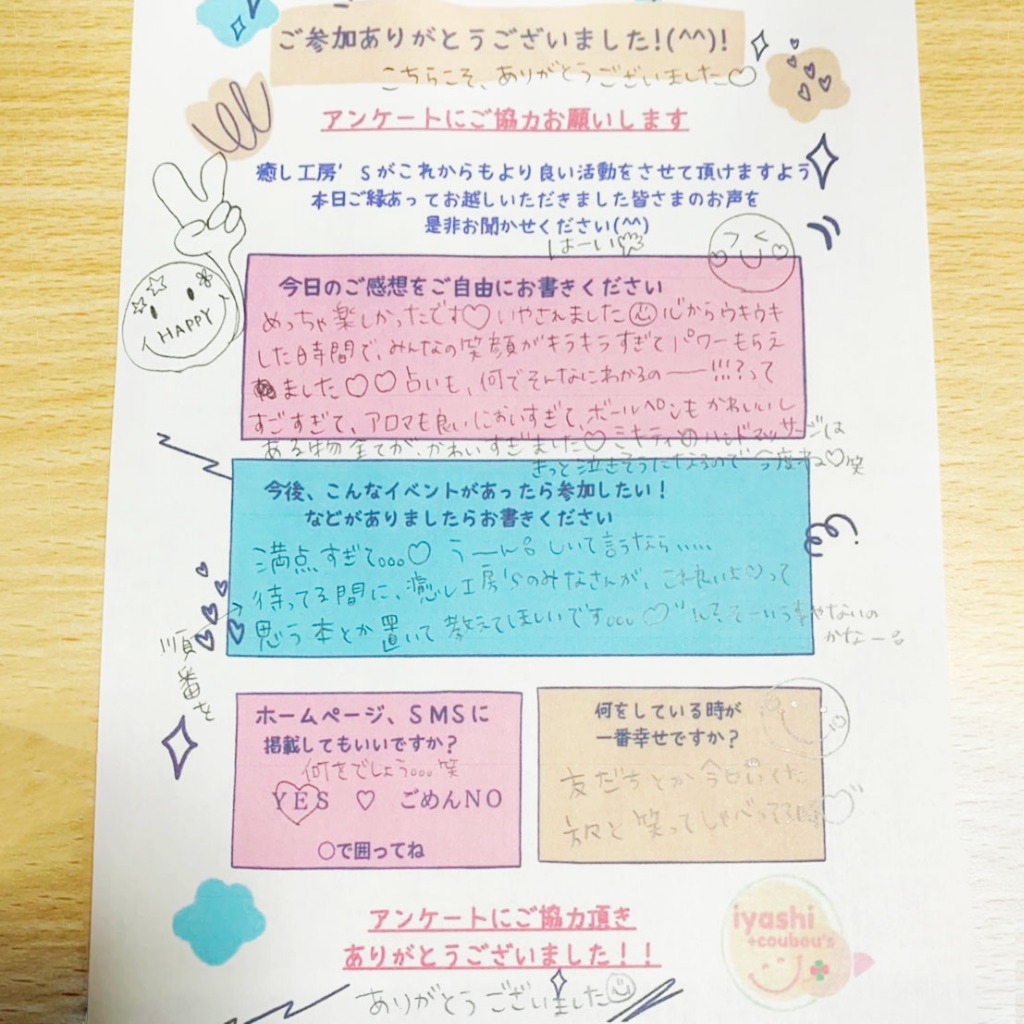 ご参加ありがとうございました!(^^)!
こちらこそ、ありがとうございました♡
アンケートにご協力お願いします
癒し工房'Sがこれからもより良い活動をさせて頂けますよう
本日ご縁あってお越しいただきました皆さまのお声を
是非お聞かせください(^^)
はーい
HAPPY
今日のご感想をご自由にお書きください
めっちゃ楽しかったです♡いやされました☺心からウキウキ
した時間で、みんなの笑顔がキラキラすぎてパワーもらえ
ました♡♡占いも、何でそんなにわかるのーー!!!?って
すごすぎて、アロマも良いにおいすぎて、ボールペンもかわいいし
ある物全てが、かわいすぎました♡ミキティのハンドマッサージは
きっと泣きそうになるので今度ね♡笑
今後、こんなイベントがあったら参加したい!
などがありましたらお書きください
満点すぎて。。。♡うーん。しいて言うなら……
待ってる間に、癒し工房'Sのみなさんが、これ良いよ♡って
思う本とか置いて教えてほしいです。。。♡んでそーいうちゃないの
かなーる
順番を
ホームページ、SMSに
掲載してもいいですか?
何をでしょう。。。笑
YES ♡ ごめんNO
○で囲ってね
何をしている時が
一番幸せですか?
友だちとか今日いくた
方々と笑ってしゃべってる時♡
アンケートにご協力頂き
ありがとうございました!!
ありがとうございました☺
iyashi
+coubou's